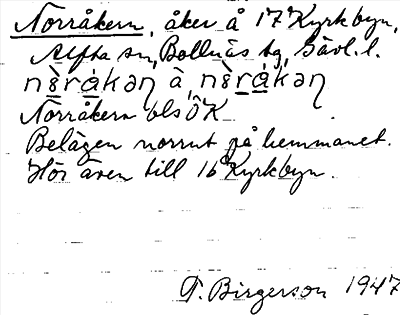 Norråkern, åker å 17⁴ Kyrkbyn,
Alfta sn, Bollnäs tg, Gävl. l.
Norråkern bls ÖK
Belägen norrut på hemmanet.
Hör även till 16 Kyrkbyn.
T. Birgerson 1947